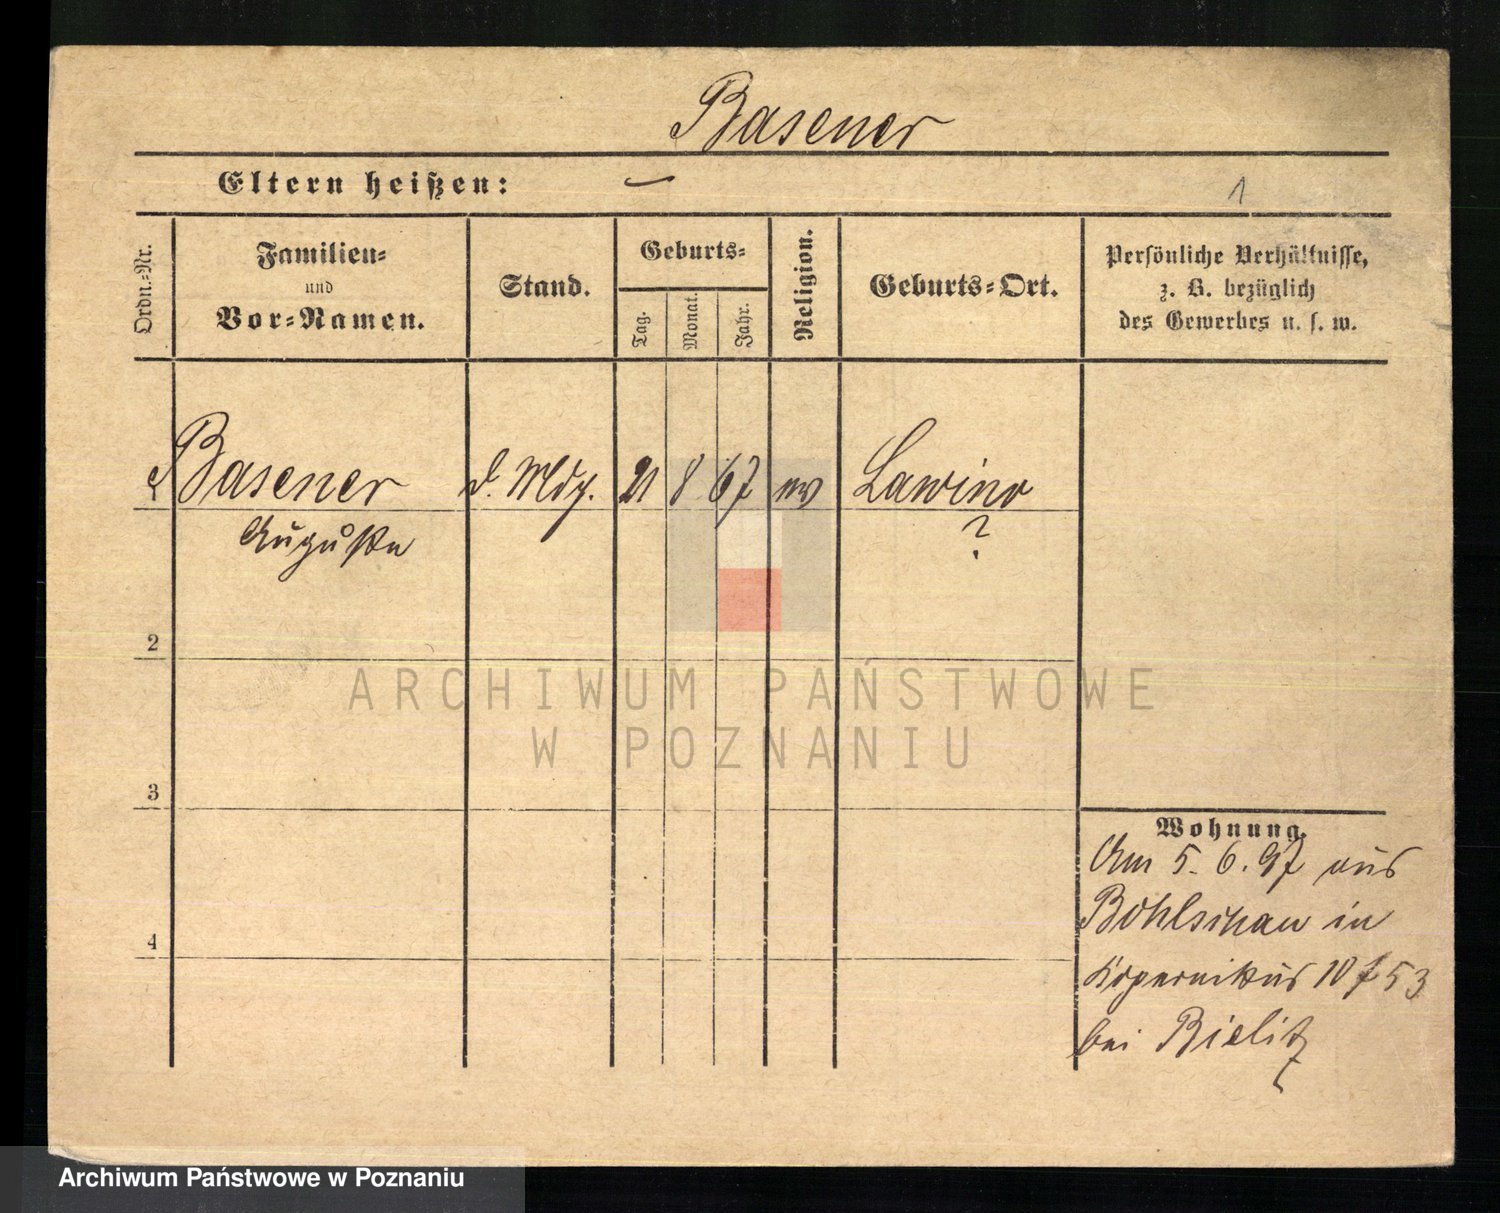 Basener
Eltern heißen: —
1
Ordn.=Nr.
Familien=
und
Vor=Namen.
Stand.
Geburts=
Tag.
Monat.
Jahr.
Religion.
Geburts=Ort.
Persönliche Verhältnisse,
z. B. bezüglich
des Gewerbes u. s. w.
Basener d. Mdg. 21 8 67 ev Lawino
Auguste ?
2
3
4
Wohnung.
Am 5. 6. 97 aus
Bohlschau in
Kopernikus 10
bei Bielitz
ARCHIWUM PAŃSTWOWE
W POZNANIU
Archiwum Państwowe w Poznaniu